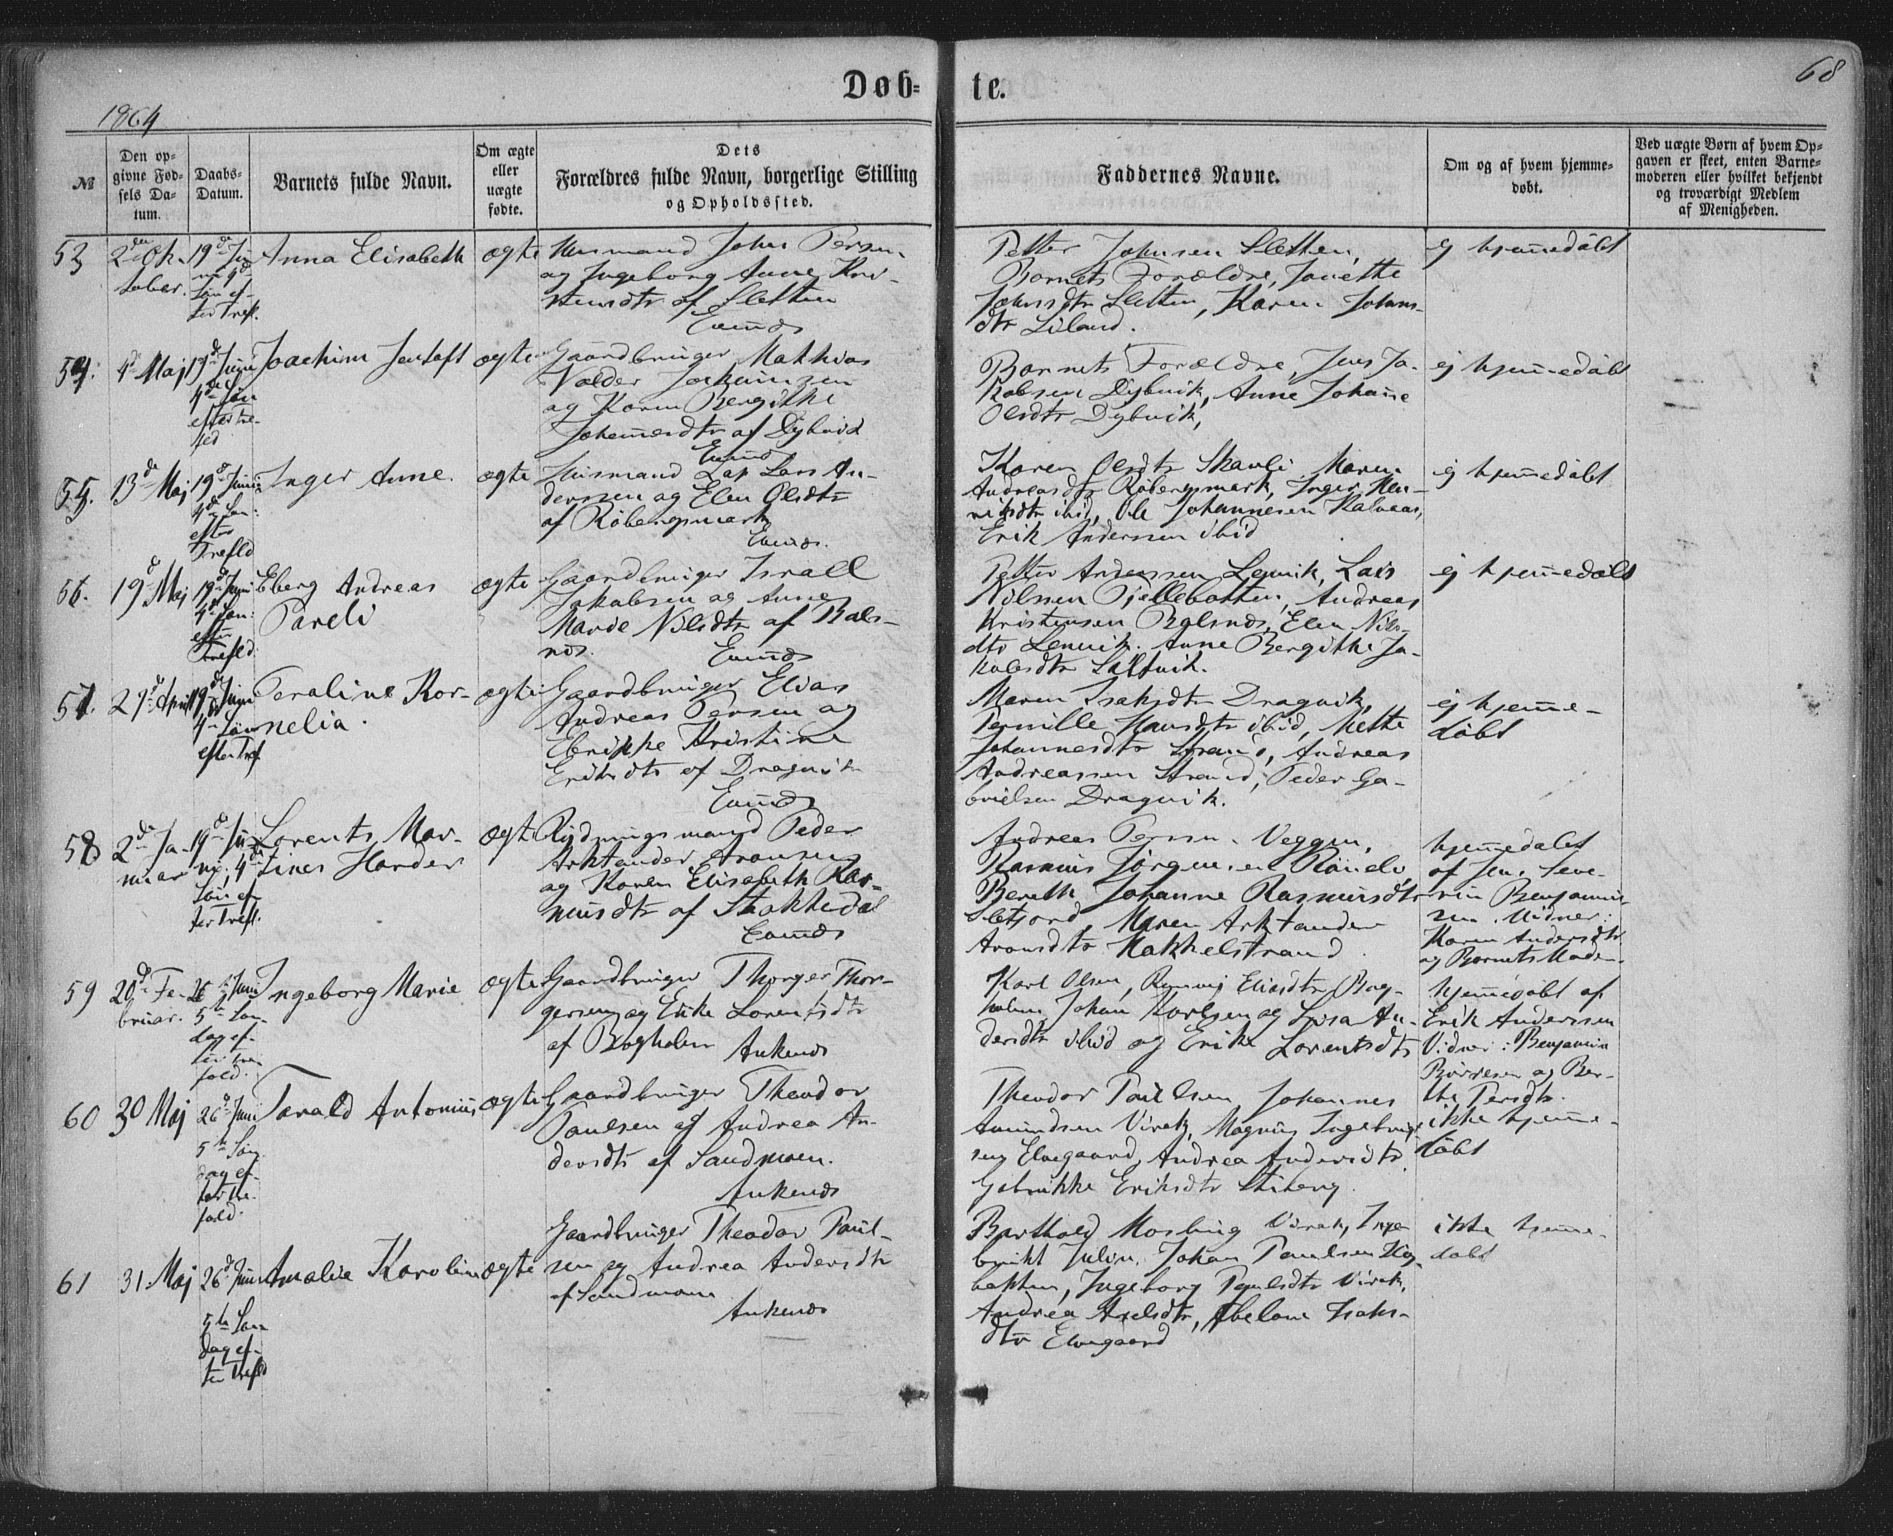 68
Døb=
te.
1864
№
Den op=
givne Fød=
sels Da=
tum.
Daabs=
Datum.
Barnets fulde Navn.
Om ægte
eller
uægte
fødte.
Dets
Forældres fulde Navn, borgerlige Stilling
og Opholdssted.
Faddernes Navne.
Om og af hvem hjemme=
døbt.
Ved uægte Børn af hvem Op=
gaven er skeet, enten Barne=
moderen eller hvilket bekjendt
og troværdigt Medlem
af Menigheden.
53
2den Ok-
tober.
19de Ju-
ni 4de
Søn ef-
ter Tref.
Anna Elisabeth
ægte
Husmand Johs Persen
og Ingeborg Anne
af Sletten
Evenæs
Petter Johnsen Sletten,
Barnets Forældre, Janette
Johnsdtr Sletten, Karen Johns-
dtr Liland.
ej hjemmedøbt
54.
4de Maj
19de Juni
4de Søn
efter Tre-
fld
Joachim Jentoft
ægte
Gaardbruger Mathias
Volder Joakimsen
og Karen Bergitthe
Johannesdtr af Dybvik
Evenæs
Barnets Forældre, Jens Ja-
kobsen Dybvik, Anne Johanne
Olsdtr Dybvik,
ej hjemmedøbt
55.
13de Maj
19de Juni
4de Søn
efter
Trefld
Inger Anne.
ægte
Husmand Lap Lars An-
derssen og Elen Olsdtr
af Røbergsmark
Evenæs.
Karen Olsdtr Skavli, Maren
Andreasdtr Røbergsmark, Inger Hen-
riksdtr ibid, Ole Johannesen Kalvaas,
Erik Anderssen ibid
ej hjemmedøbt
56.
19de Maj
19de Juni
4de Søn
efter
Trefld.
Eberg Andreas
Pareli
ægte
Gaardbruger Israel
Jakobsen og Anne
Marie Nilsdtr af Bals-
næs.
Evenæs
Petter Anderssen Lenvik, Lars
Nilssen Fjellebotten, Andreas
Kristensen Balsnæs, Elen Nils-
dtr Lenvik. Anne Bergithe Ja-
kobsdtr
ej hjemmedøbt
57.
29de April
19de Juni
4de Søn
efter Tref
Peraline Kor-
nelia.
ægte
Gaardbruger Elias
Andreas Persen og
Ebrikke Kristine
Eriksdtr af Dragvik
Evenæs
Maren Isaksdtr Dragvik,
Pernille Hansdtr ibid, Mette
Johannesdtr Strand, Andreas
Andreassen Strand, Peder Ga-
brielsen Dragvik.
ej hjemme-
døbt
58
2den Ja-
nuar
19de Ju-
ni, 4de
Søn ef-
ter Tref.
Lorents Mar-
tines Harder
ægte
Rydningsmand Peder
Arktander Aronsen
og Karen Elisabeth Ras-
musdtr af Stokkedal
Evenæs
Andreas Persen Veggen,
Rasmus Jørgensen
Bereth Johanne Rasmusdtr
Sletjord, Maren Arktander
Aronsdtr Kakkelstrand
hjemmedøbt
af Jens Seve-
rin Benjamin-
sen. Vidner:
Karen Andersdtr
og Barnets Moder.
59
20de Fe-
bruar.
26de Juni
5te Søn-
dag ef-
ter Tre-
fold.
Ingeborg Marie
ægte
Gaardbruger Thorger Thor-
gersen og Erike Lorentsdtr
af Bogholm
Ankenæs
Karl Olsen, Rønnvig Eliasdtr Bog-
holm, Johan Karlsen og Lovisa An-
dersdtr ibid og Erike Lorentsdtr
hjemmedøbt af
Erik Anderssen
Vidner: Benjamin
Borresen og Ber-
the Persdtr.
60
30 Maj
26de Juni
5te Søn-
dag ef-
ter Tre-
fold.
Tarald Antonius
ægte
Gaardbruger Theodor
Paulsen og Andrea An-
dersdtr af Sandmoen.
Ankenæs
Theodor Paulsen, Johannes
Amundsen Virak, Magnus Ingebrigt-
sen Elvegaard, Andrea Andersdtr
Gabrikke Eriksdtr Stiberg.
ikke hjemme-
døbt
61
31. Maj
26de Juni
5te Søn-
dag ef-
ter Trefld
Amalia Karoline
ægte
Gaardbruger Theodor Paul-
sen og Andrea Andersdtr
af Sandmoen
Ankenæs
Barthold Mosling Virak, Inge-
brikt Julin, Johan Paulsen
bakken, Ingeborg Paulsdtr Virak,
Andrea Axelsdtr, Abelone Isaks-
dtr Elvegaard
ikke hjemme-
døbt